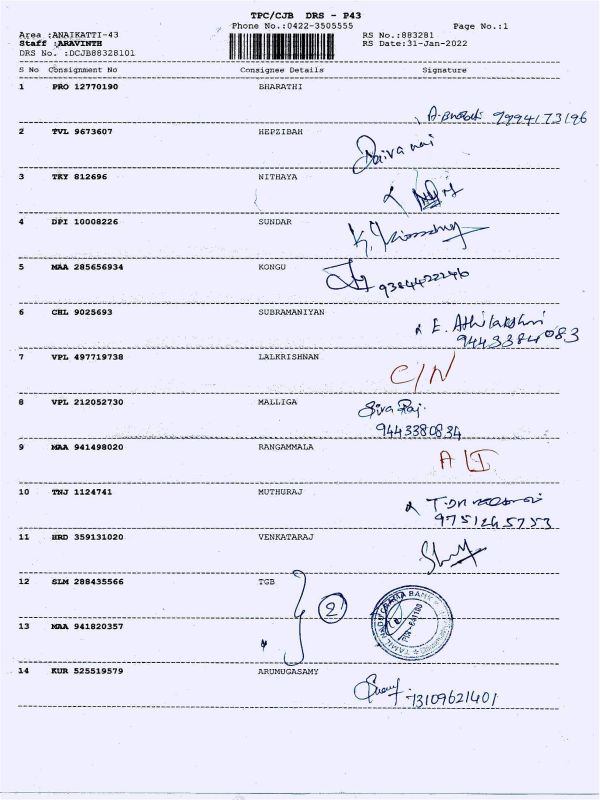 TPC/CJB DRS - P43
Phone No.:0422-3505555 Page No.:1
Area :ANAIKATTI-43 RS No.:883281
Staff :ARAVINTH RS Date:31-Jan-2022
DRS No. :DCJB88328101
S No Consignment No Consignee Details Signature
1 PRO 12770190 BHARATHI
9994173196
2 TVL 9673607 HEPZIBAH
3 TKY 812696 NITHAYA
4 DPI 10008226 SUNDAR
5 MAA 285656934 KONGU
9384422246
6 CHL 9025693 SUBRAMANIYAN
E. Athilakshmi
9443384083
7 VPL 497719738 LALKRISHNAN
C/N
8 VPL 212052730 MALLIGA
Siva Raj.
9443380834
9 MAA 941498020 RANGAMMALA
10 TNJ 1124741 MUTHURAJ
9751265753
11 HRD 359131020 VENKATARAJ
12 SLM 288435566 TGB
2
TAMIL NADU GRAMA BANK
13 MAA 941820357
14 KUR 525519579 ARUMUGASAMY
13109621401